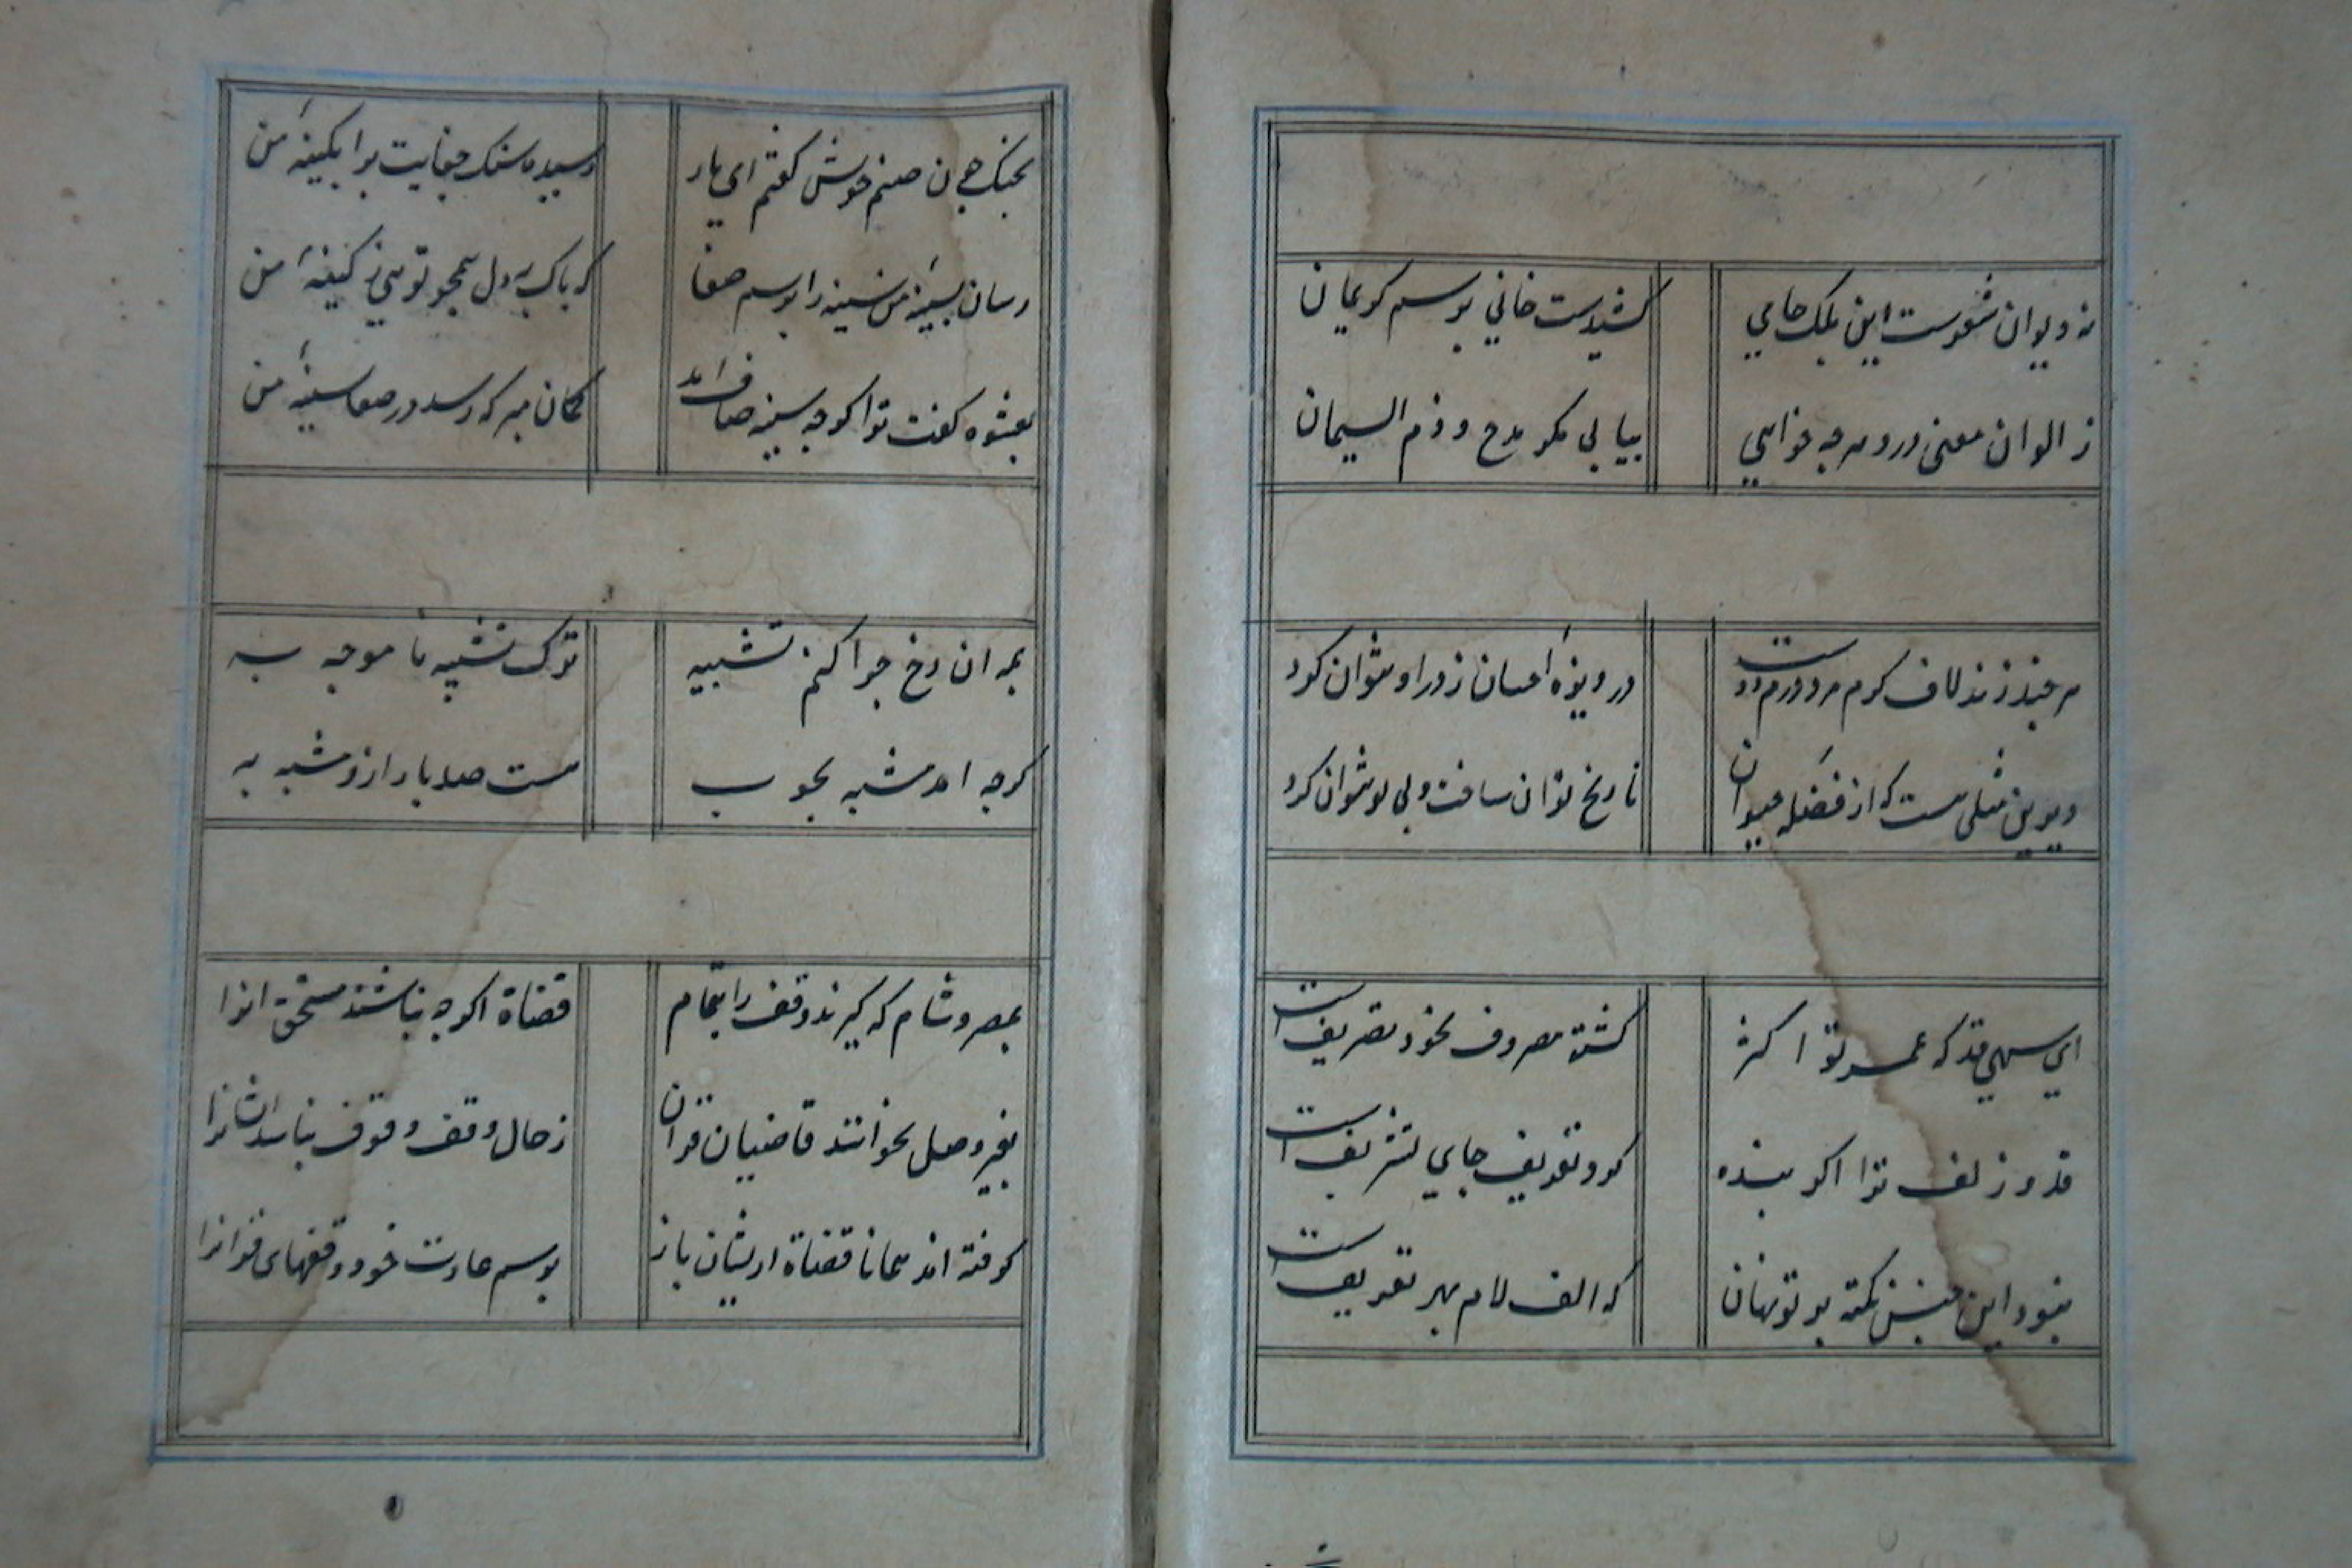 نه دیوان شعرست این بلک جامی کشیدست خانی برسم کریمان
ز الوان معنی درو هرچه خواهی بیابی مگر مدح و ذم لئیمان
هر چند زند لاف کرم مرد درم دوست دریوزهٔ احسان ز در او نتوان کرد
دیرین مثلی هست که از فضلهٔ حیوان نارنج توان ساخت ولی بو نتوان کرد
ای سهی قد که عمر تو اکثر گشته مصروف نحو و تصریف است
قد و زلف ترا اگر بنده کرد تعریف جای تشریف است
نبود این جنس نکته بر تو نهان که الف لام بهر تعریف است
بجنگ جان صنم خوش گفتم ای یار رسیده سنگ جفایت بر آبگینهٔ من
رسان بسینهٔ من سینه را برسم صفا که پاک به دل همچو تویی ز کینهٔ من
بعشوه گفت ترا گرچه سینه صاف آمد گمان مبر که رسد در صفا سینهٔ من
بمه آن رخ چرا کنم تشبیه ترک تشبیه ناموجه به
گرچه آمد مشبه به خوب هست صد بار ازو مشبه به
بمصر و شام که گیرند وقف را بتمام قضاة اگرچه نباشند مستحق آنرا
بغیر وصل نخوانند قاضیان قرآن ز حال وقف وقوف نباشد ایشانرا
گرفته اند همانا قضاة ازیشان باز برسم عادت خود وقفهای قرآنرا